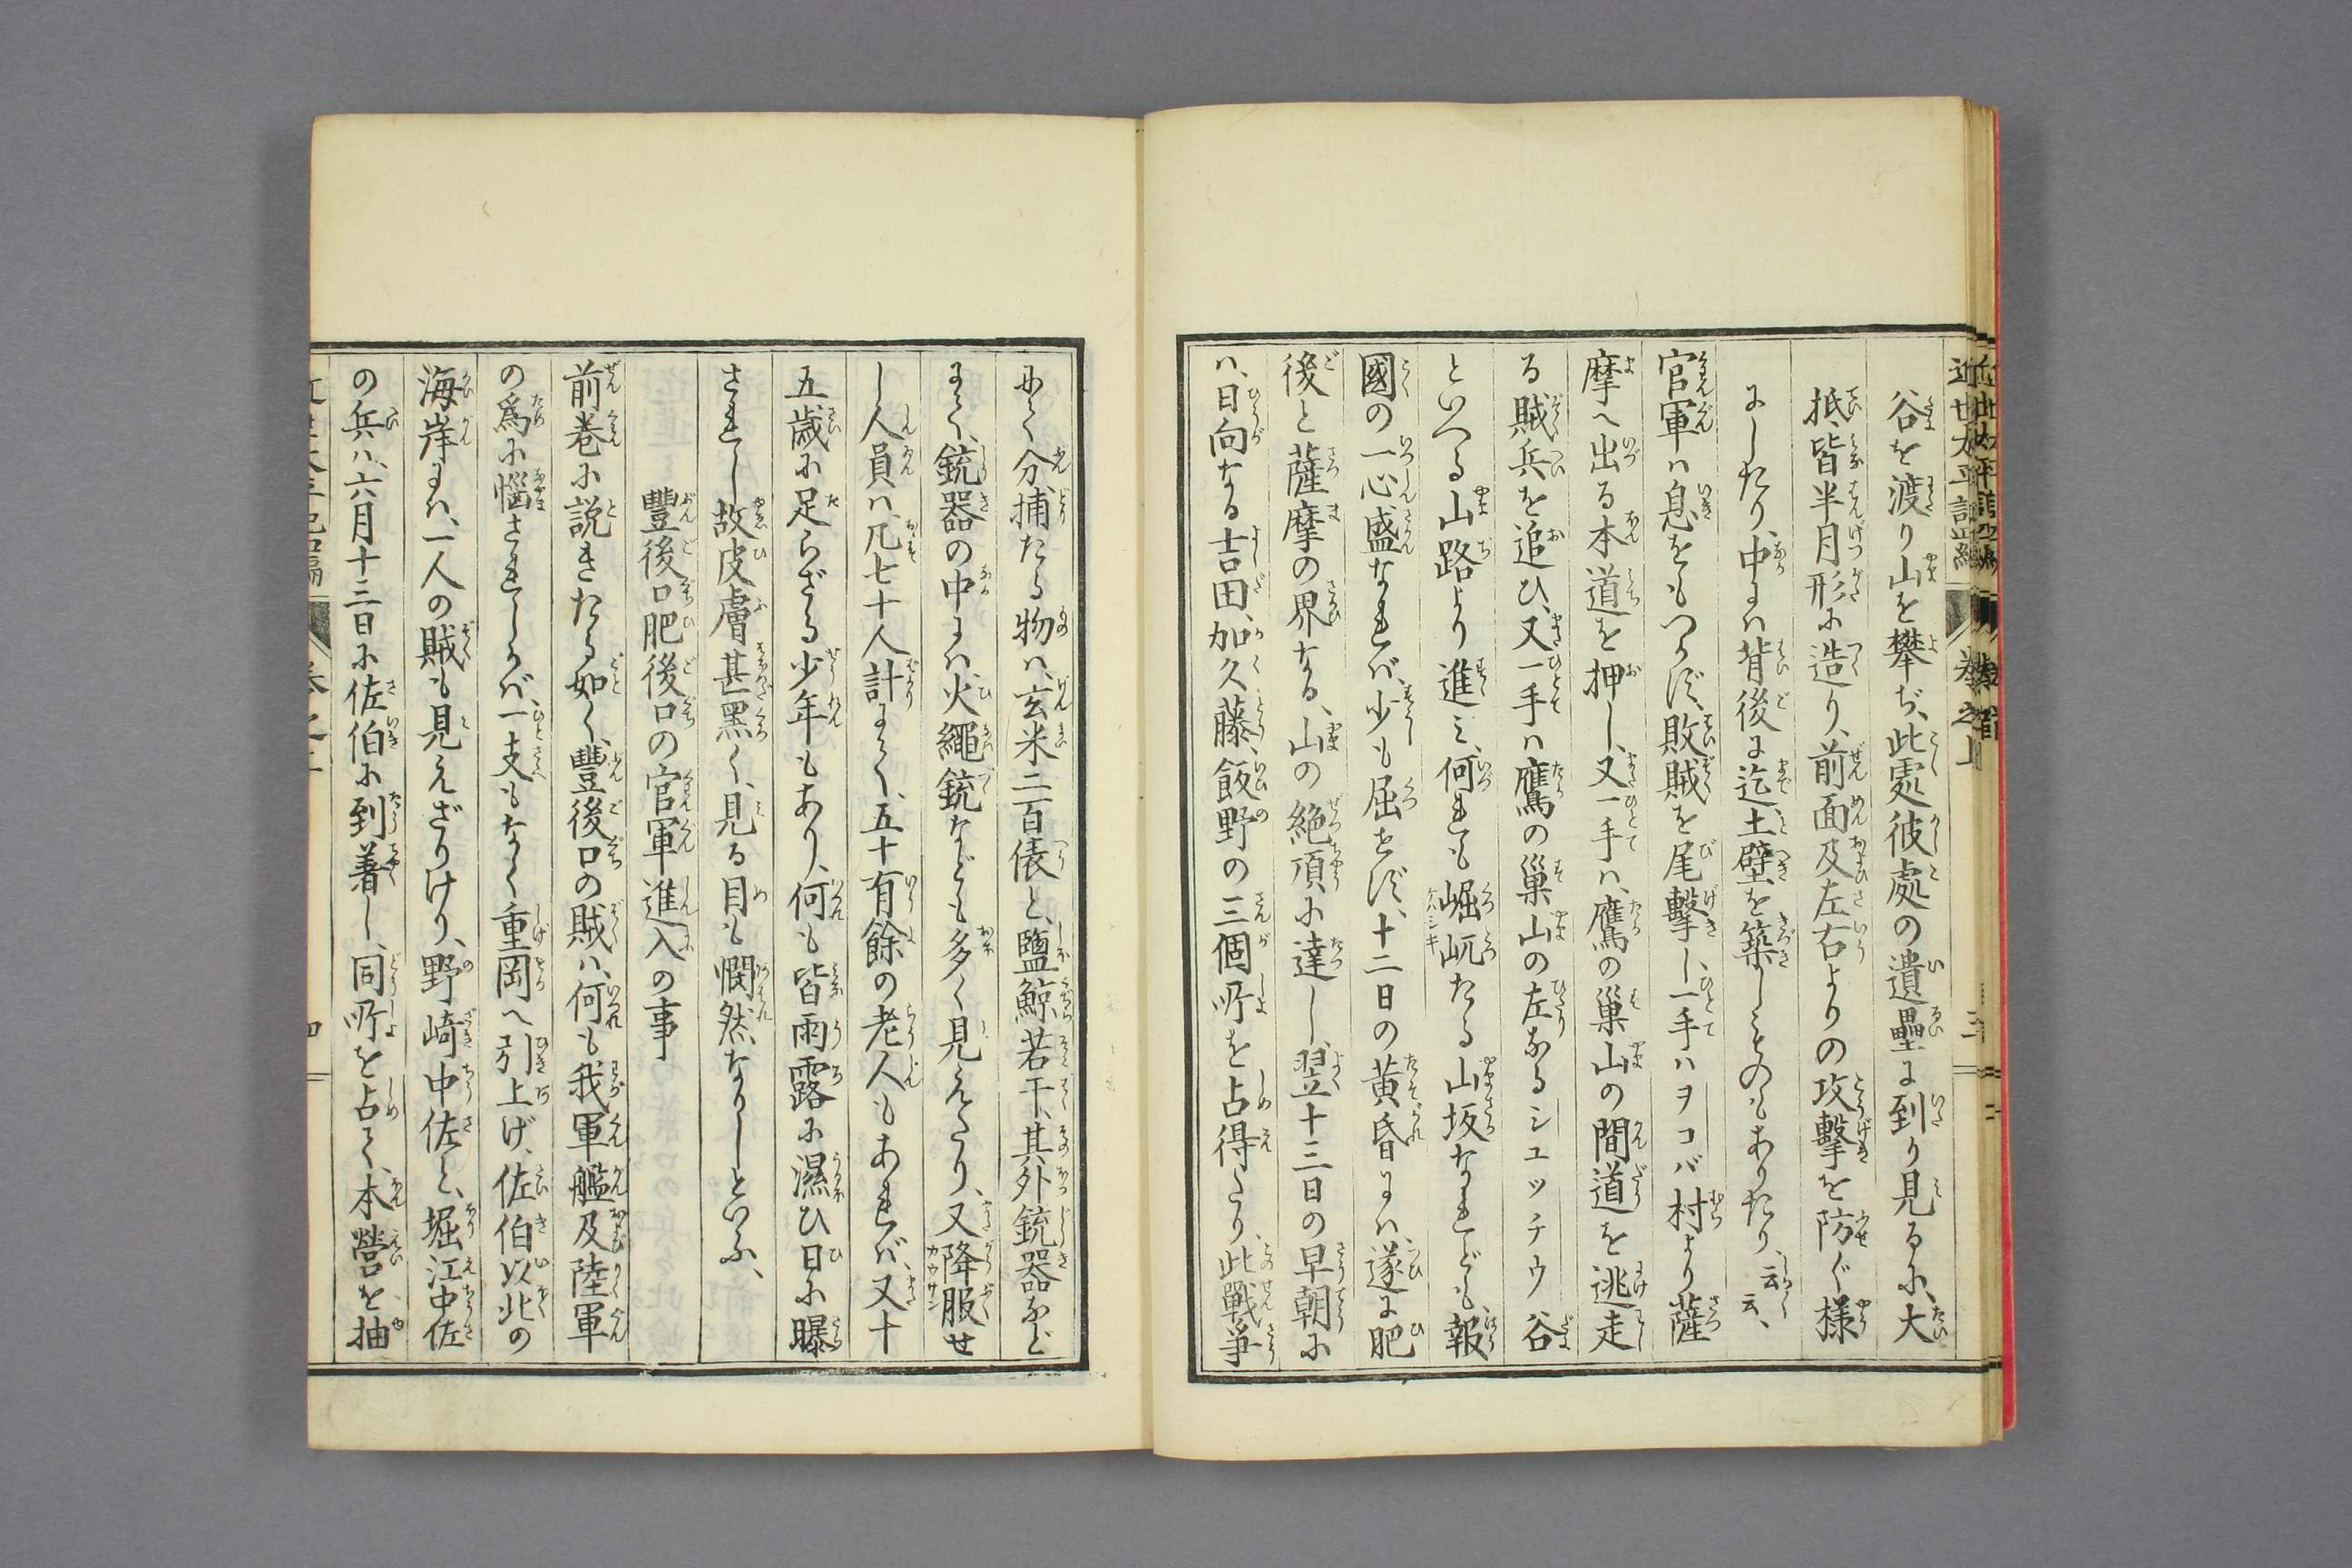 谷を渡り山を攀ぢ、此處彼處の遺壘に到り見るに、大
抵、皆半月形に造り、前面及左右よりの攻撃を防ぐ様
にしたり、中には背後に迄、土壁を築しものもありたり、云云、
官軍は息をもつかず、敗賊を尾撃し、一手ハヲコバ村より薩
摩へ出る本道を押し、又一手は、鷹の巢山の間道を逃走
る賊兵を追ひ、又一手は鷹の巢山の左なるシユツチウ谷
といへる山路より進み、何れも崛屼たる山坂なれども、報
國の一心、盛なれば、少も屈せず、十二日の黄昏には、遂に肥
後と薩摩の界なる、山の絶頂に達し、翌十三日の早朝に
は、日向なる吉田、加久藤、飯野の三個所を占得たり、此戰爭
にて分捕たる物は、玄米二百俵と、鹽鯨若干、其外銃器など
にて、銃器の中には、火繩銃なども多く見えたり、又降服せ
し人員は、凡七十人計にて、五十有餘の老人もあれば、又十
五歳に足らざる少年もあり、何も皆雨露に濕ひ日に曝
されし故皮膚甚黑く、見る目も憫然なりしといふ、
豐後口肥後口の官軍進入の事
前卷に説きたる如く、豐後口の賊は、何も我軍艦及陸軍
の爲に惱されしかば、一支もなく重岡へ引上げ、佐伯以北の
海岸には、一人の賊も見えざりけり、野崎中佐と、堀江中佐
の兵は、六月十三日に佐伯に到着し、同所を占て、本營を抽